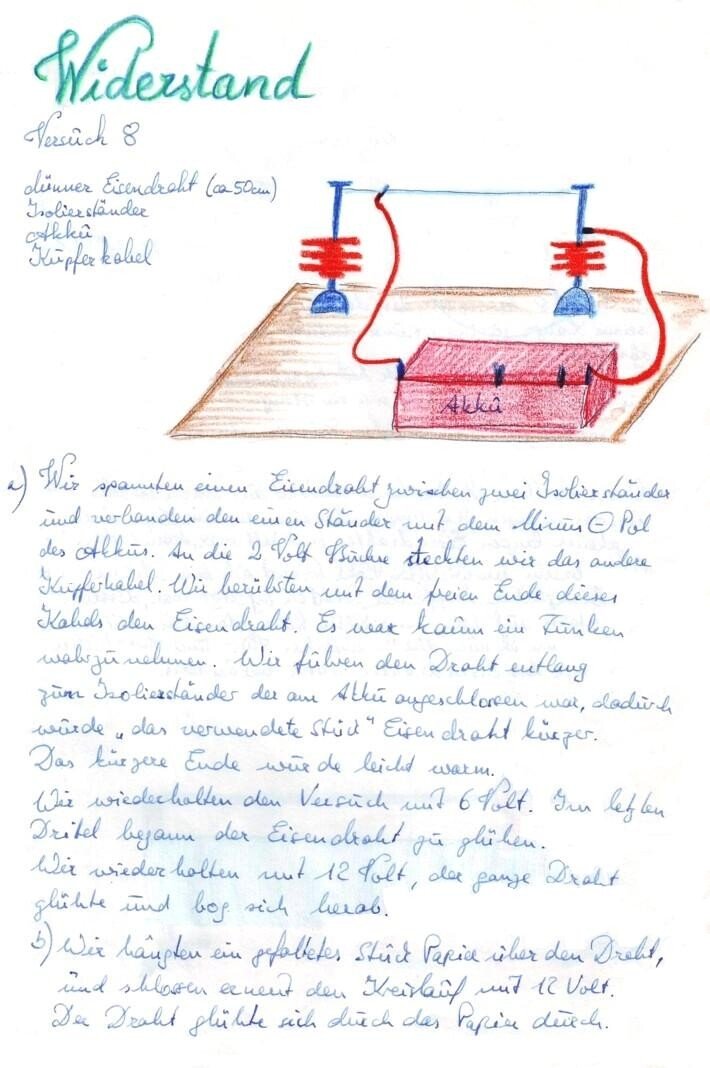 Widerstand
Versuch 8
dünner Eisendraht (ca 50cm)
Isolierständer
Akku
Kupferkabel
Akku
a) Wir spannten einen Eisendraht zwischen zwei Isolierständer
und verbanden den einen Ständer mit dem Minus ⊖ Pol
des Akkus. An die 2 Volt Buchse steckten wir das andere
Kupferkabel. Wir berührten mit dem freien Ende dieses
Kabels den Eisendraht. Es war kaum ein Funken
wahrzunehmen. Wir fuhren den Draht entlang
zum Isolierständer der am Akku angeschlossen war, dadurch
wurde „das verwendete Stück" Eisendraht kürzer.
Das kürzere Ende wurde leicht warm.
Wir wiederholten den Versuch mit 6 Volt. Im letzten
Drittel begann der Eisendraht zu glühen.
Wir wiederholten mit 12 Volt, der ganze Draht
glühte und bog sich herab.
b) Wir hängten ein gefaltetes Stück Papier über den Draht,
und schlossen erneut den Kreislauf mit 12 Volt.
Der Draht glühte sich durch das Papier durch.